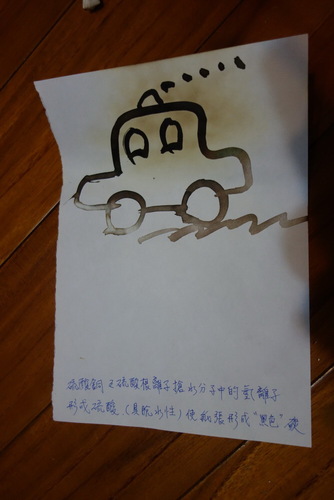 硫酸銅之硫酸根離子搶水分子中的氫離子
形成硫酸，(具脫水性)使紙張形成"黑色"碳